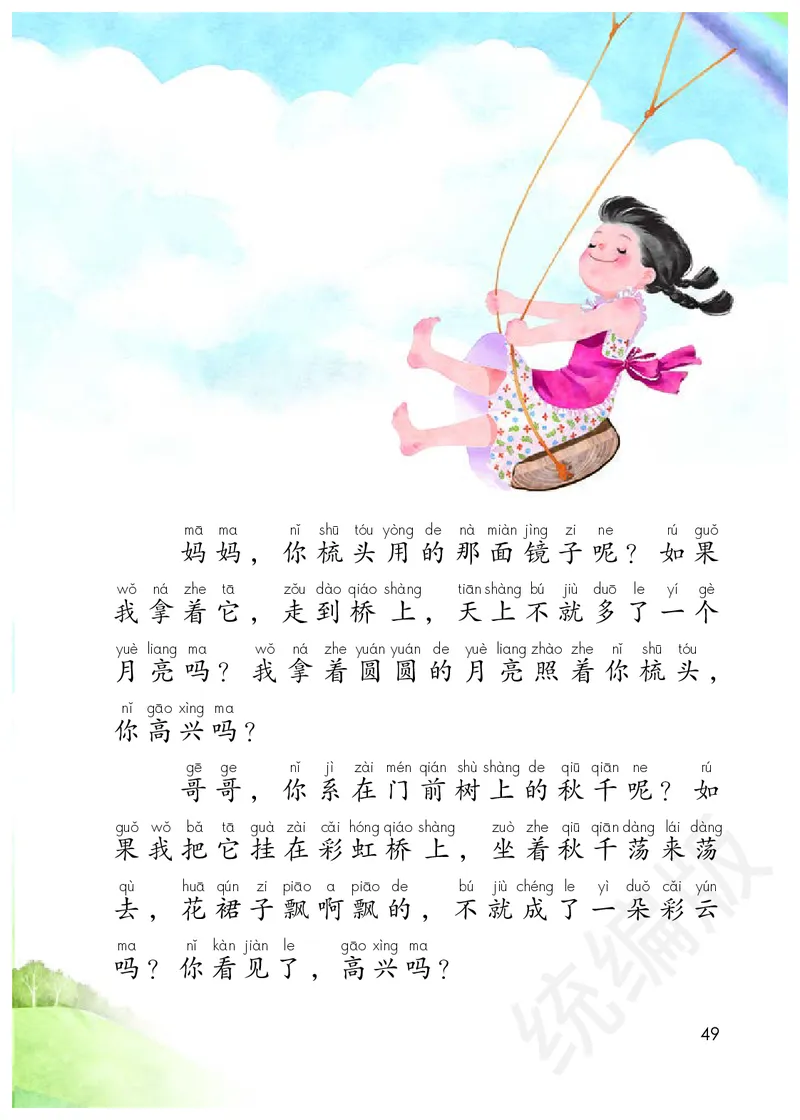 mā ma nǐ shū tóu yòng de nà miàn jìng zi ne rú guǒ
妈妈，你梳头用的那面镜子呢？如果
wǒ ná zhe tā zǒu dào qiáo shàng tiān shàng bú jiù duō le yí gè
我拿着它，走到桥上，天上不就多了一个
yuè liang ma wǒ ná zhe yuán yuán de yuè liang zhào zhe nǐ shū tóu
月亮吗？我拿着圆圆的月亮照着你梳头，
nǐ gāo xìng ma
你高兴吗？
gē ge nǐ jì zài mén qián shù shàng de qiū qiān ne rú
哥哥，你系在门前树上的秋千呢？如
guǒ wǒ bǎ tā guà zài cǎi hóng qiáo shàng zuò zhe qiū qiān dàng lái dàng
果我把它挂在彩虹桥上，坐着秋千荡来荡
qù huā qún zi piāo a piāo de bú jiù chéng le yì duǒ cǎi yún
去，花裙子飘啊飘的，不就成了一朵彩云
ma nǐ kàn jiàn le gāo xìng ma
吗？你看见了，高兴吗？
统编版
49